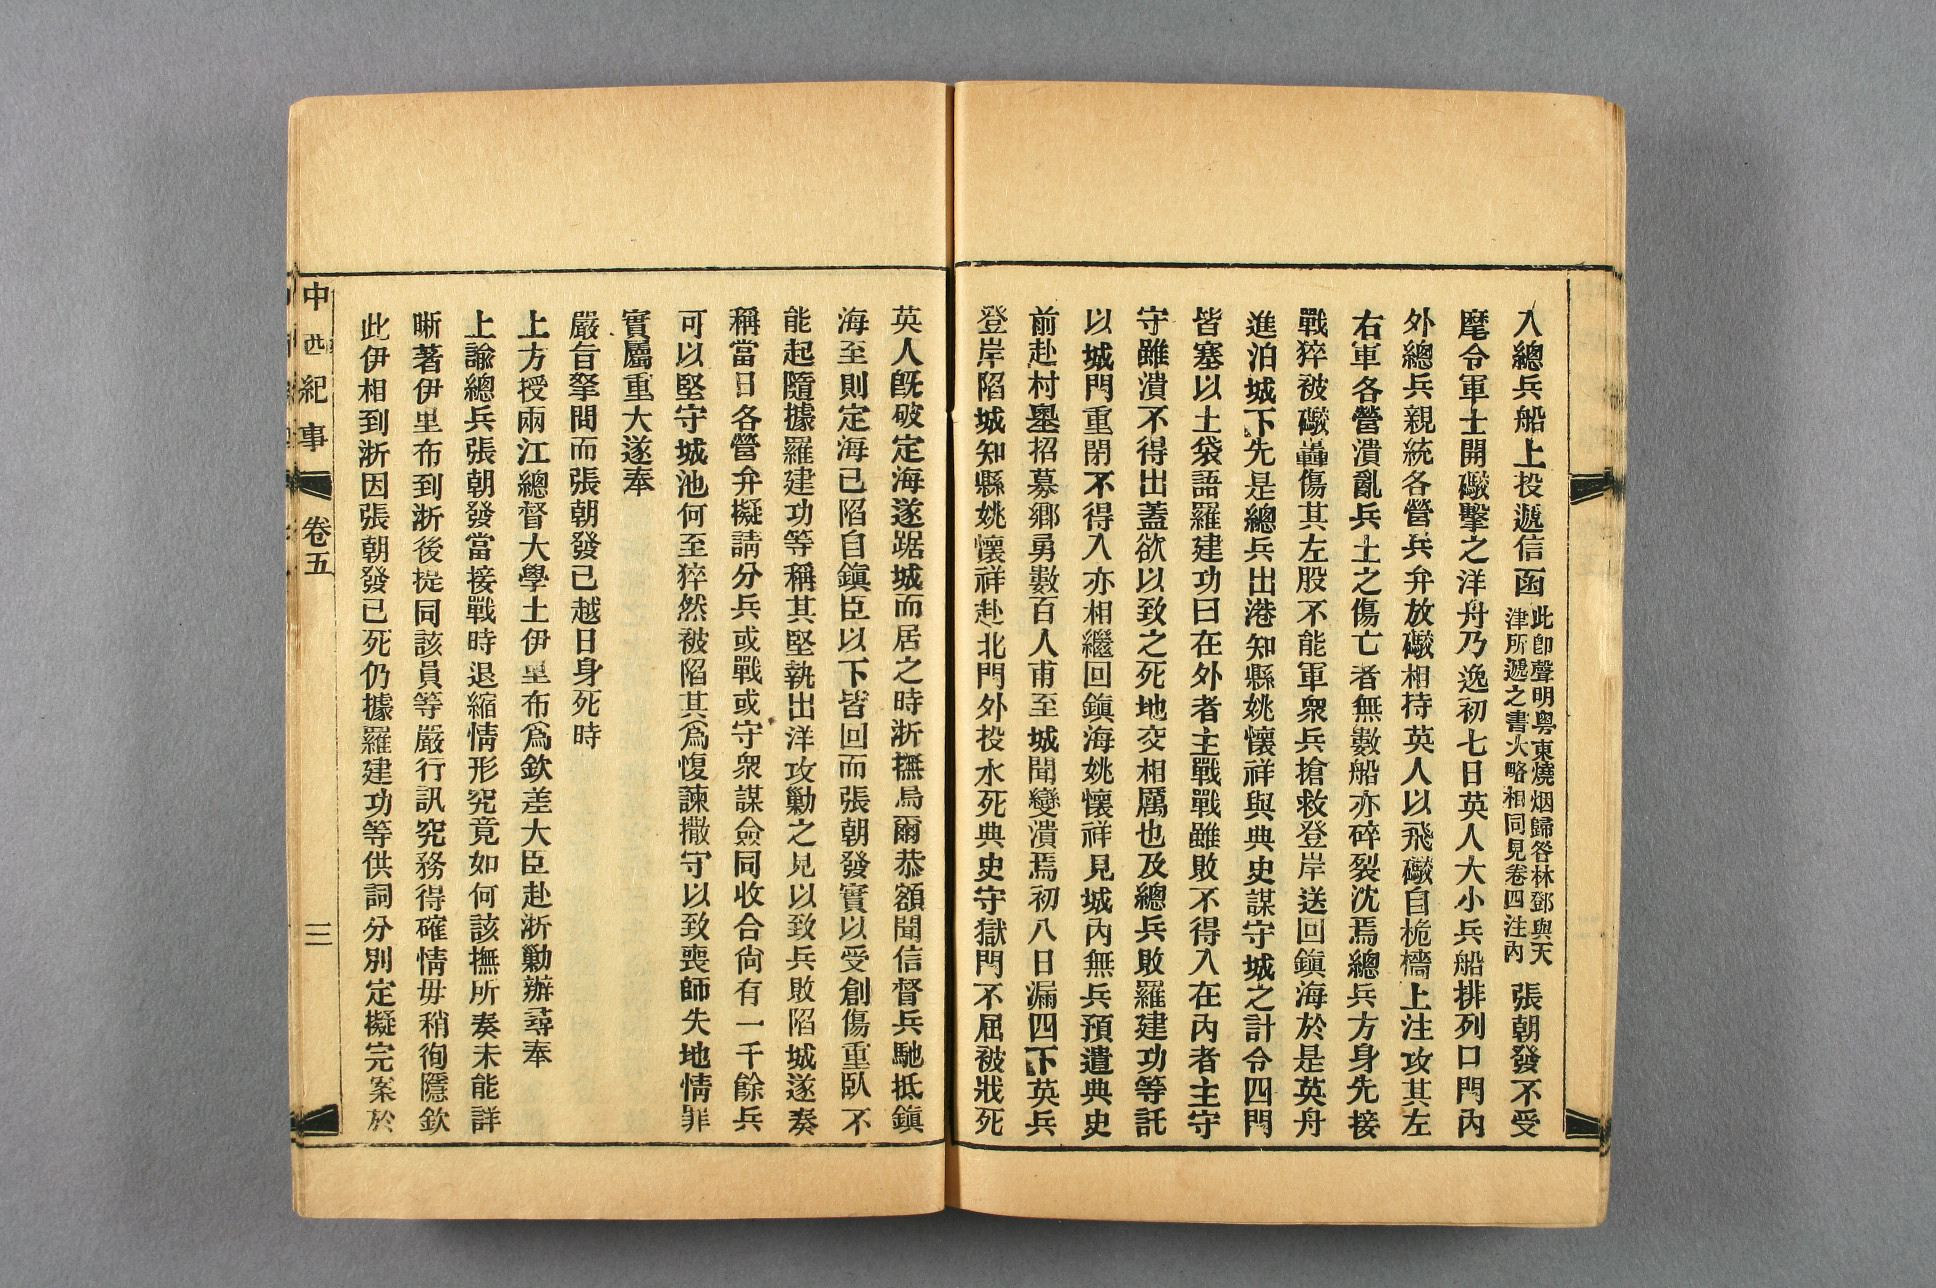 入總兵船上投遞信函此卽聲明粵東燒烟歸咎林鄧與天津所遞之書大略相同見卷四注內張朝發不受
麾令軍士開礮擊之洋舟乃逸初七日英人大小兵船排列口門內
外總兵親統各營兵弁放礮相持英人以飛礮自桅檣上注攻其左
右軍各營潰亂兵士之傷亡者無數船亦碎裂沈焉總兵方身先接
戰猝被礮轟傷其左股不能軍衆兵搶救登岸送回鎭海於是英舟
進泊城下先是總兵出港知縣姚懷祥與典史謀守城之計令四門
皆塞以土袋語羅建功曰在外者主戰戰雖敗不得入在內者主守
守雖潰不得出蓋欲以致之死地交相厲也及總兵敗羅建功等託
以城門重閉不得入亦相繼回鎭海姚懷祥見城內無兵預遣典史
前赴村墺招募鄉勇數百人甫至城聞變潰焉初八日漏四下英兵
登岸陷城知縣姚懷祥赴北門外投水死典史守獄門不屈被戕死
英人旣破定海遂踞城而居之時浙撫烏爾恭額聞信督兵馳抵鎭
海至則定海已陷自鎭臣以下皆回而張朝發實以受創傷重臥不
能起隨據羅建功等稱其堅執出洋攻勦之見以致兵敗陷城遂奏
稱當日各營弁擬請分兵或戰或守衆謀僉同收合尙有一千餘兵
可以堅守城池何至猝然被陷其爲愎諫撒守以致喪師失地情罪
實屬重大遂奉
嚴旨拏問而張朝發已越日身死時
上方授兩江總督大學士伊里布爲欽差大臣赴浙勦辦尋奉
上諭總兵張朝發當接戰時退縮情形究竟如何該撫所奏未能詳
晰著伊里布到浙後提同該員等嚴行訊究務得確情毋稍徇隱欽
此伊相到浙因張朝發已死仍據羅建功等供詞分別定擬完案於
中西紀事 卷五 三